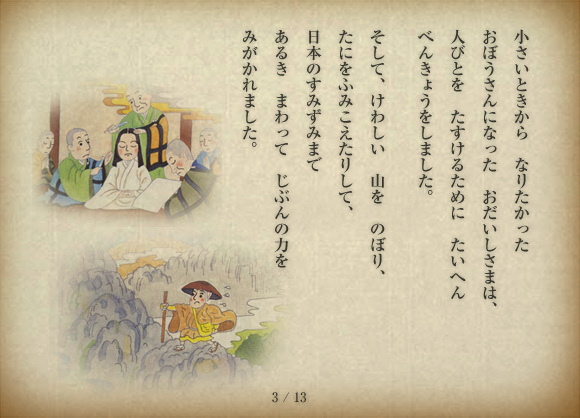 小さいときから　なりたかった
おぼうさんになった　おだいしさまは、
人びとを　たすけるために　たいへん
べんきょうをしました。
そして、けわしい　山を　のぼり、
たにをふみこえたりして、
日本のすみずみまで
あるき　まわって　じぶんの力を
みがかれました。
3 / 13